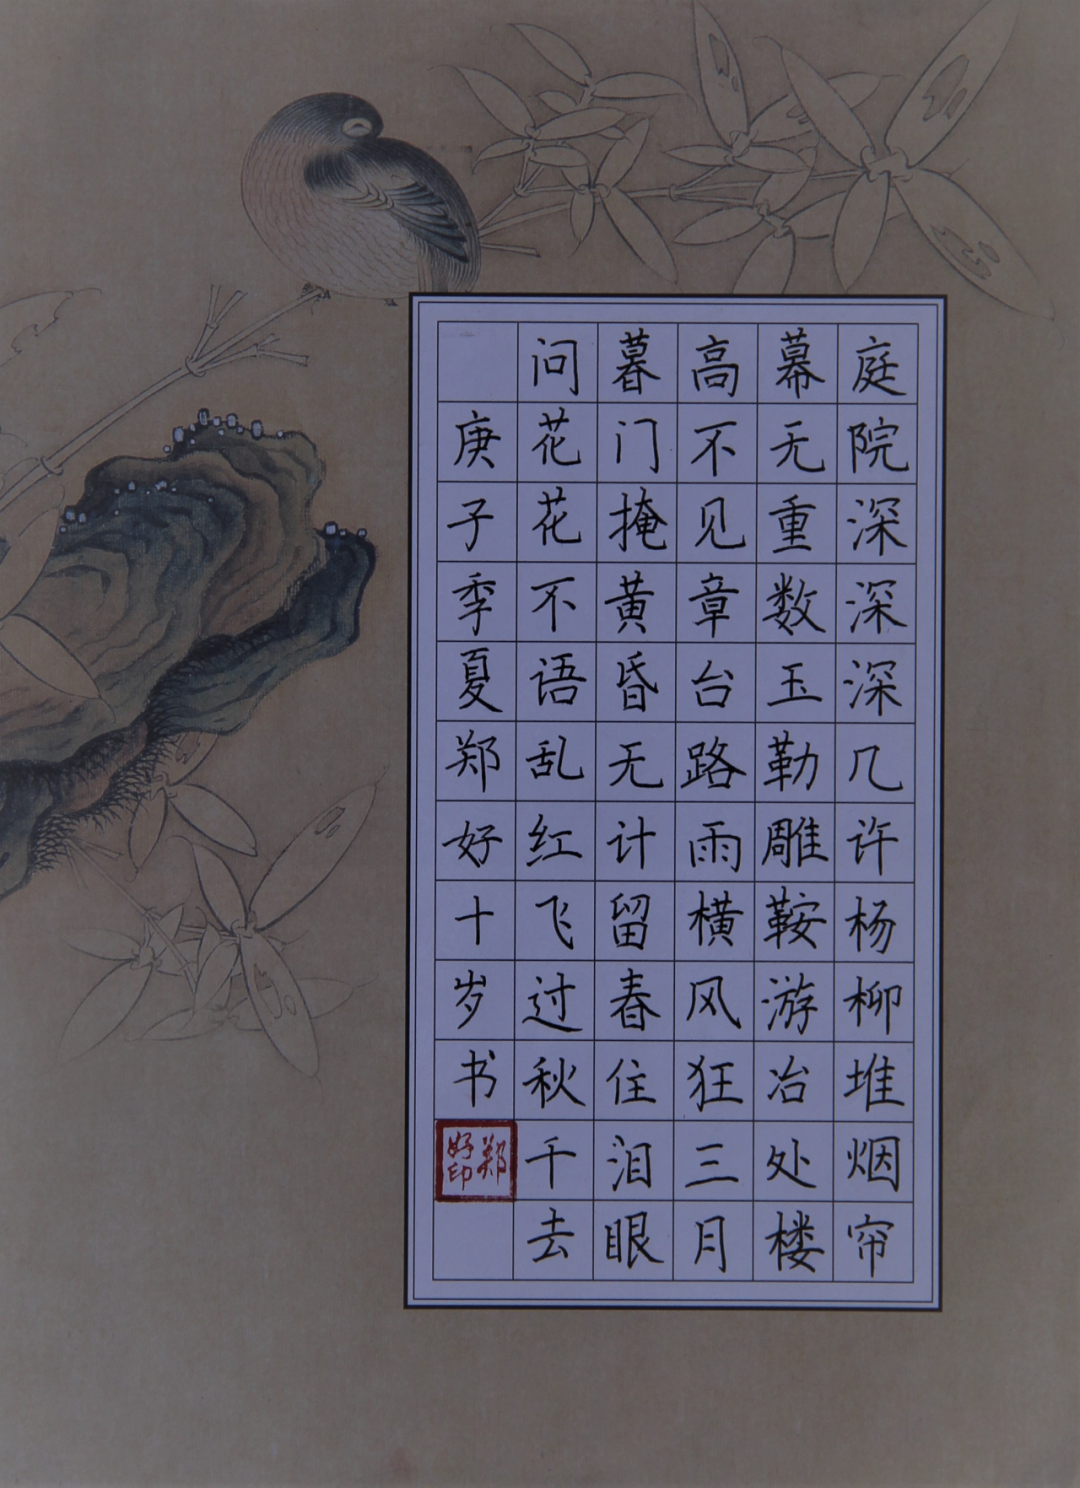 庭院深深深几许杨柳堆烟帘
幕无重数玉勒雕鞍游冶处楼
高不见章台路雨横风狂三月
暮门掩黄昏无计留春住泪眼
问花花不语乱红飞过秋千去
庚子季夏郑好十岁书
郑好印